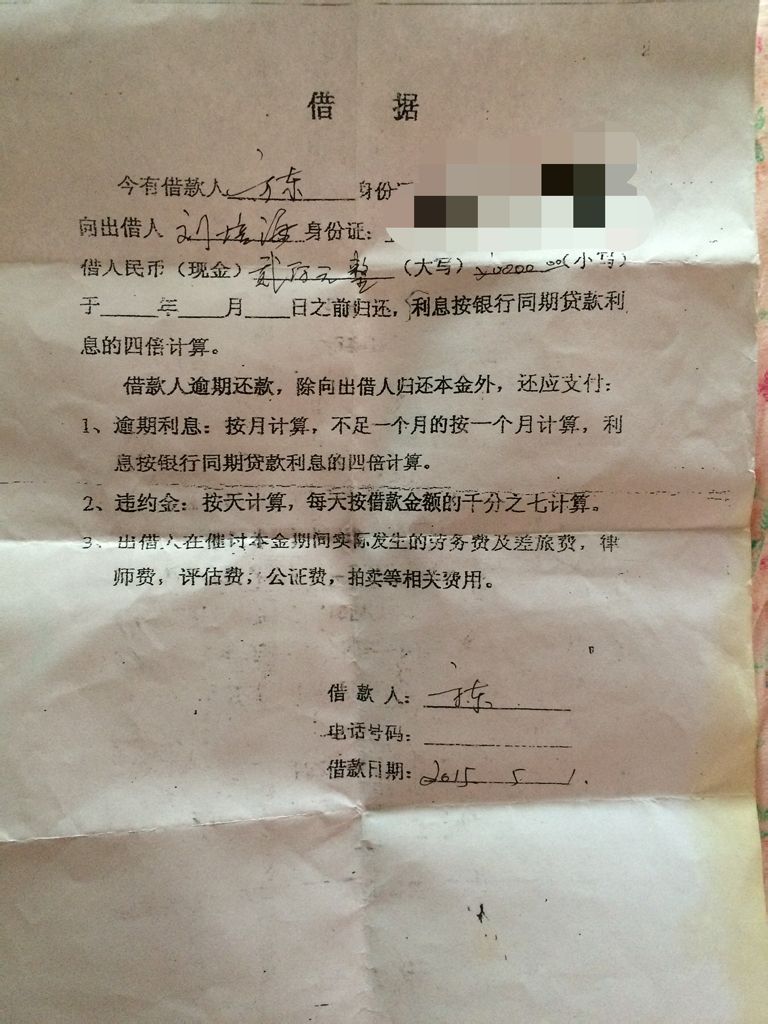 借 据
今有借款人 方东 身份
向出借人 刘培海 身份证：
借人民币（现金）贰万元整（大写）20000.00（小写）
于____年____月____日之前归还，利息按银行同期贷款利
息的四倍计算。
借款人逾期还款，除向出借人归还本金外，还应支付：
1、逾期利息：按月计算，不足一个月的按一个月计算，利
息按银行同期贷款利息的四倍计算。
2、违约金：按天计算，每天按借款金额的千分之七计算。
3、出借人在催讨本金期间实际发生的劳务费及差旅费，律
师费，评估费，公证费，拍卖等相关费用。
借款人：方东
电话号码：
借款日期：2015 5 1.